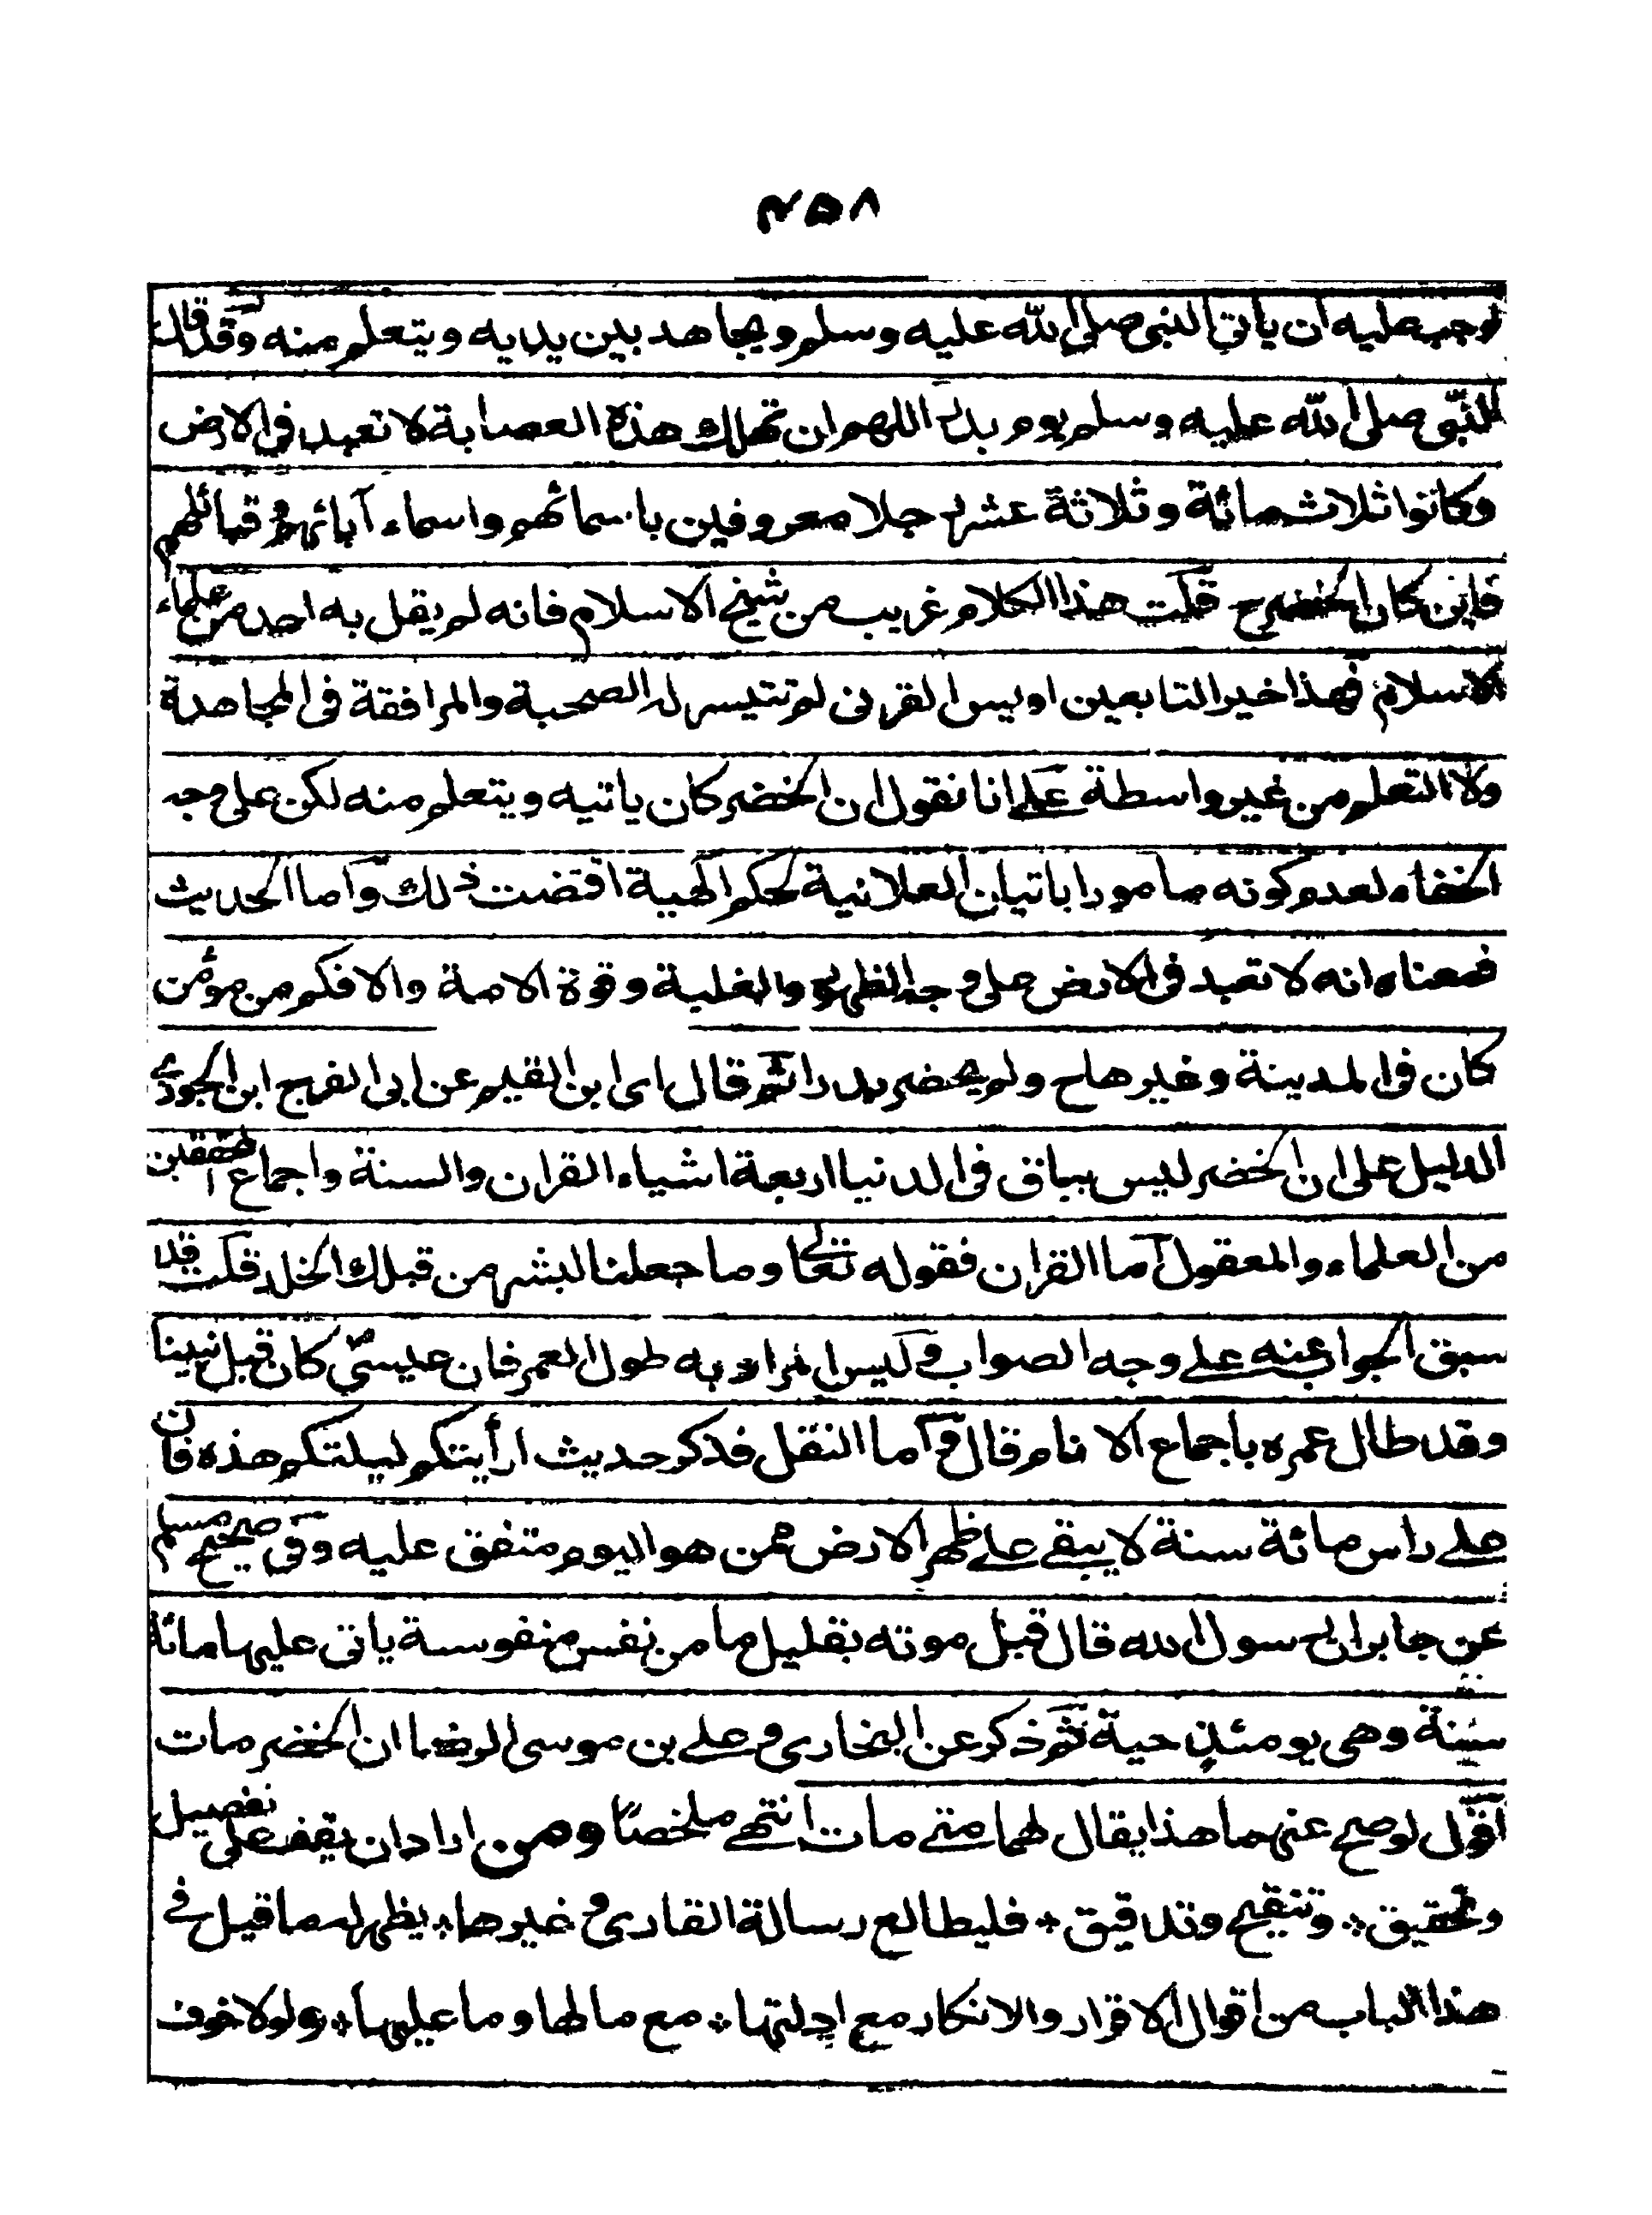 ٢٥٨
لوجب عليه ان ياتي النبي صلى الله عليه وسلم ويجاهد بين يديه ويتعلم منه وقد قال
النبي صلى الله عليه وسلم يوم بدر اللهم ان تهلك هذه العصابة لا تعبد في الارض
وكانوا ثلاثمائة وثلاثة عشر رجلا معروفين باسمائهم واسماء آبائهم وقبائلهم
فاين كان الخضر ح قلت هذا الكلام غريب من شيخ الاسلام فانه لم يقل به احد من علماء
الاسلام فهذا خير التابعين اويس القرني لم تتيسر له الصحبة والمرافقة في المجاهدة
ولا التعلم من غير واسطة على انا نقول ان الخضر كان ياتيه ويتعلم منه لكن على وجه
الخفاء لعدم كونه مامورا باتيان العلانية لحكم الهية اقتضت ذلك واما الحديث
فمعناه انه لا تعبد في الارض على وجه الظهور والغلبة وقوة الامة والا فكم من مؤمن
كان في المدينة وغيرها ح ولم يحضر بدرا ثم قال اى ابن القيم عن ابي الفرج ابن الجوزي
الدليل على ان الخضر ليس بباق في الدنيا اربعة اشياء القران والسنة واجماع المحققين
من العلماء والمعقول اما القران فقوله تعالى وما جعلنا لبشر من قبلك الخلد قلت قد
سبق الجواب عنه على وجه الصواب وليس المراد به طول العمر فان عيسىٰ كان قبل نبينا
وقد طال عمره باجماع الانام قال واما النقل فذكر حديث ارأيتكم ليلتكم هذه فان
على راس مائة سنة لا يبقى على ظهر الارض ممن هو اليوم متفق عليه وفي صحيح مسلم
عن جابر ان رسول الله قال قبل موته بقليل ما من نفس منفوسة ياتي عليها مائة
سنة وهي يومئذ حية ثم ذكر عن البخاري وعلي بن موسى الرضا ان الخضر مات
اقول لو صح عنهما هذا يقال لهما متى مات انتهى ملخصًا ومن اراد ان يقف على تفصيل
وتحقيق * وتنقيح وتدقيق * فليطالع رسالة القاري وغيرها * يظهر له ما قيل في
هذا الباب من اقوال الاقرار والانكار مع ادلتها * مع ما لها وما عليها * ولولا خوف